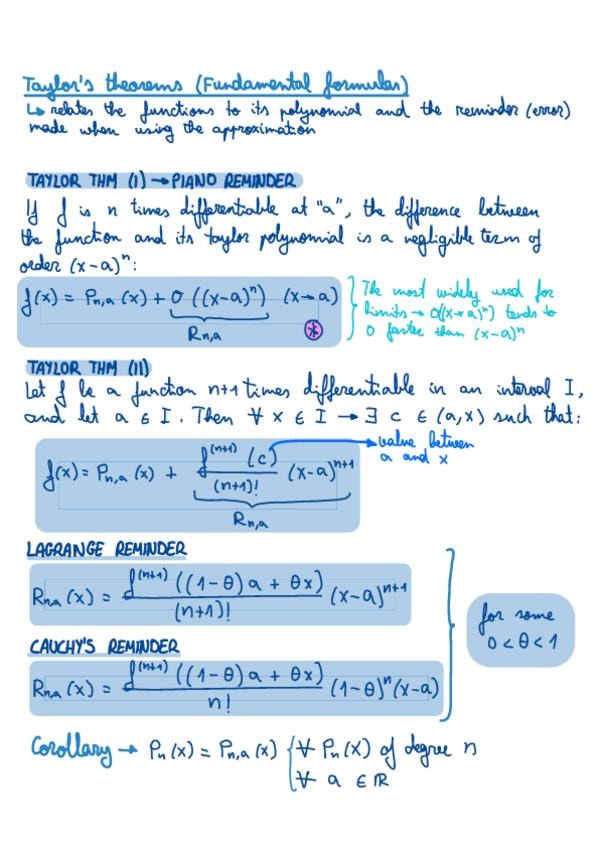 Taylor's theorems (Fundamental formulas)
↳ relates the functions to its polynomial and the reminder (error)
made when using the approximation
TAYLOR THM (I) → PIANO REMINDER
If f is n times differentiable at "a", the difference between
the function and its taylor polynomial is a negligible term of
order (x-a)ⁿ:
f(x) = Pn,a (x) + o ((x-a)ⁿ) (x→a)
Rn,a
*
The most widely used for
limits → o((x→a)ⁿ) tends to
0 faster than (x-a)ⁿ
TAYLOR THM (II)
Let f be a function n+1 times differentiable in an interval I,
and let a ∈ I. Then ∀ x ∈ I → ∃ c ∈ (a,x) such that:
f(x) = Pn,a (x) + f⁽ⁿ⁺¹⁾ (c) / (n+1)! (x-a)ⁿ⁺¹
Rn,a
→ value between
a and x
LAGRANGE REMINDER
Rn,a (x) = f⁽ⁿ⁺¹⁾ ((1-θ) a + θx) / (n+1)! (x-a)ⁿ⁺¹
CAUCHY'S REMINDER
Rn,a (x) = f⁽ⁿ⁺¹⁾ ((1-θ) a + θx) / n! (1-θ)ⁿ (x-a)
for some
0<θ<1
Corollary → Pn (x) = Pn,a (x) { ∀ Pn (x) of degree n
∀ a ∈ ℝ